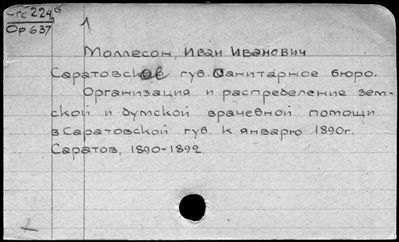 гс 224б
Ор 637
1
Моллесон, Иван Иванович
Саратовское губ. Санитарное бюро.
Организация и распределение зем-
ской и думской врачебной помощи
в Саратовской губ. к январю 1890г.
Саратов, 1890-1892